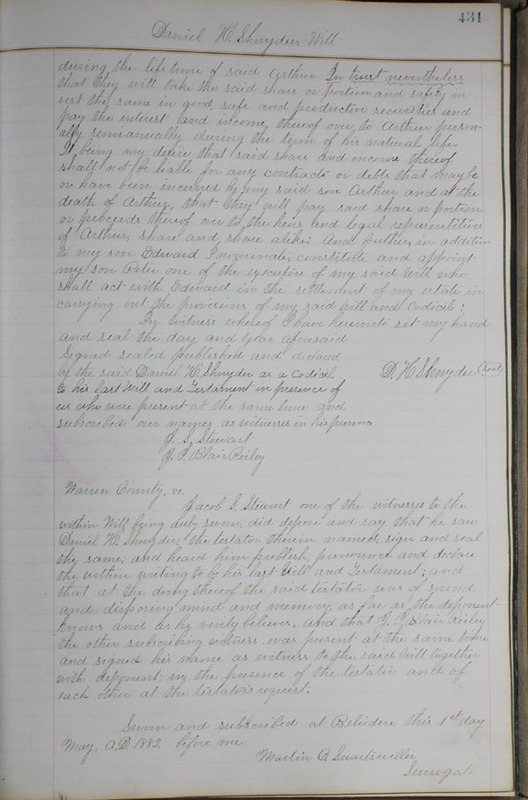 431
Daniel H. Shnyder Will
during the life time of said Arthur In trust nevertheless
that they will take the said share or portion and safely in-
vest the same in good safe and productive securities and
pay the interest and income thereof over to Arthur person-
ally semiannually during the term of his natural life.
It being my desire that said share and income thereof
shall not be liable for any contracts or debts that maybe
or have been incurred by my said son Arthur, and at the
death of Arthur, that they will pay said share or portion
or proceeds thereof over to the heirs and legal representatives
of Arthur, share and share alike: And further, in addition
to my son Edward I nominate, constitute and appoint
my son Peter one of the executors of my said Will who
shall act with Edward in the settlement of my estate in
carrying out the provisions of my said Will and Codicil:
In Witness whereof I have hereunto set my hand
and seal the day and year aforesaid
Signed sealed published and declared
by the said Daniel H. Shnyder as a Codicil
D. H. Shnyder Seal
to his last Will and Testament in presence of
us who were present at the same time and
subscribed our names as witnesses in his presence
J. S. Stewart
J. P. Blair Reiley
Warren County, ss.
Jacob S. Stewart one of the witnesses to the
within Will, being duly sworn did depose and say that he saw
Daniel H. Shnyder, the testator therein named, sign and seal
the same, and heard him publish, pronounce and declare
the within writing to be his last Will and Testament; and
that at the doing thereof the said testator was of sound
and disposing mind and memory, as far as the deponent
knows and as he verily believes, and that J. P. Blair Reiley
the other subscribing witness was present at the same time
and signed his name as witness to the said Will together
with deponent in the presence of the testator and of
each other at the testator's request.
Sworn and subscribed at Belvidere this 1st day
May, A.D. 1882, before me
Martin C. Swartsweller
Surrogate